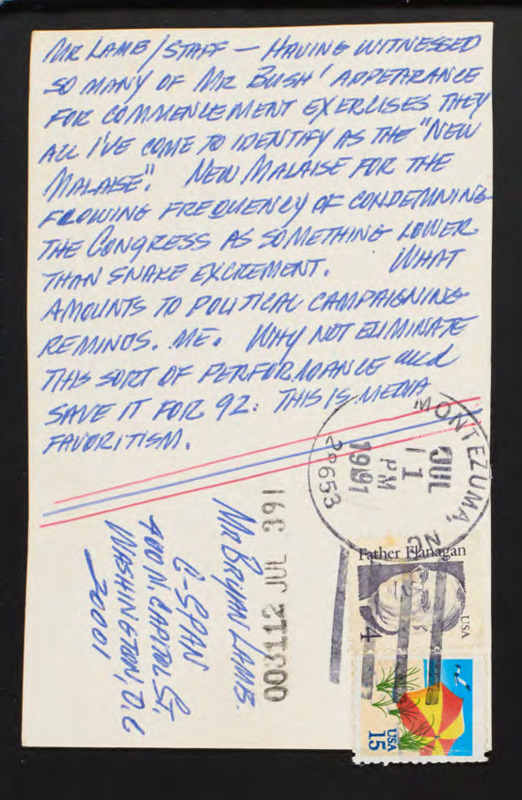 MR LAMB/STAFF — HAVING WITNESSED
SO MANY OF MR BUSH' APPEARANCE
FOR COMMENCEMENT EXERCISES THEY
ALL I'VE COME TO IDENTIFY AS THE "NEW
MALAISE". NEW MALAISE FOR THE
FLOWING FREQUENCY OF CONDEMNING
THE CONGRESS AS SOMETHING LOWER
THAN SNAKE EXCREMENT. WHAT
AMOUNTS TO POLITICAL CAMPAIGNING
REMINDS. ME. WHY NOT ELIMINATE
THIS SORT OF PERFORMANCE and
SAVE IT FOR 92: THIS IS MEDIA
FAVORITISM.
MONTEZUMA, NC
JUL
1
PM
1991
28653
MR BRYIAN LAMB.
C-SPAN
400 N CAPITOL ST.
WASHINGTON, D.C
20001
003112 JUL 391
Father Flanagan
USA
4
USA
15